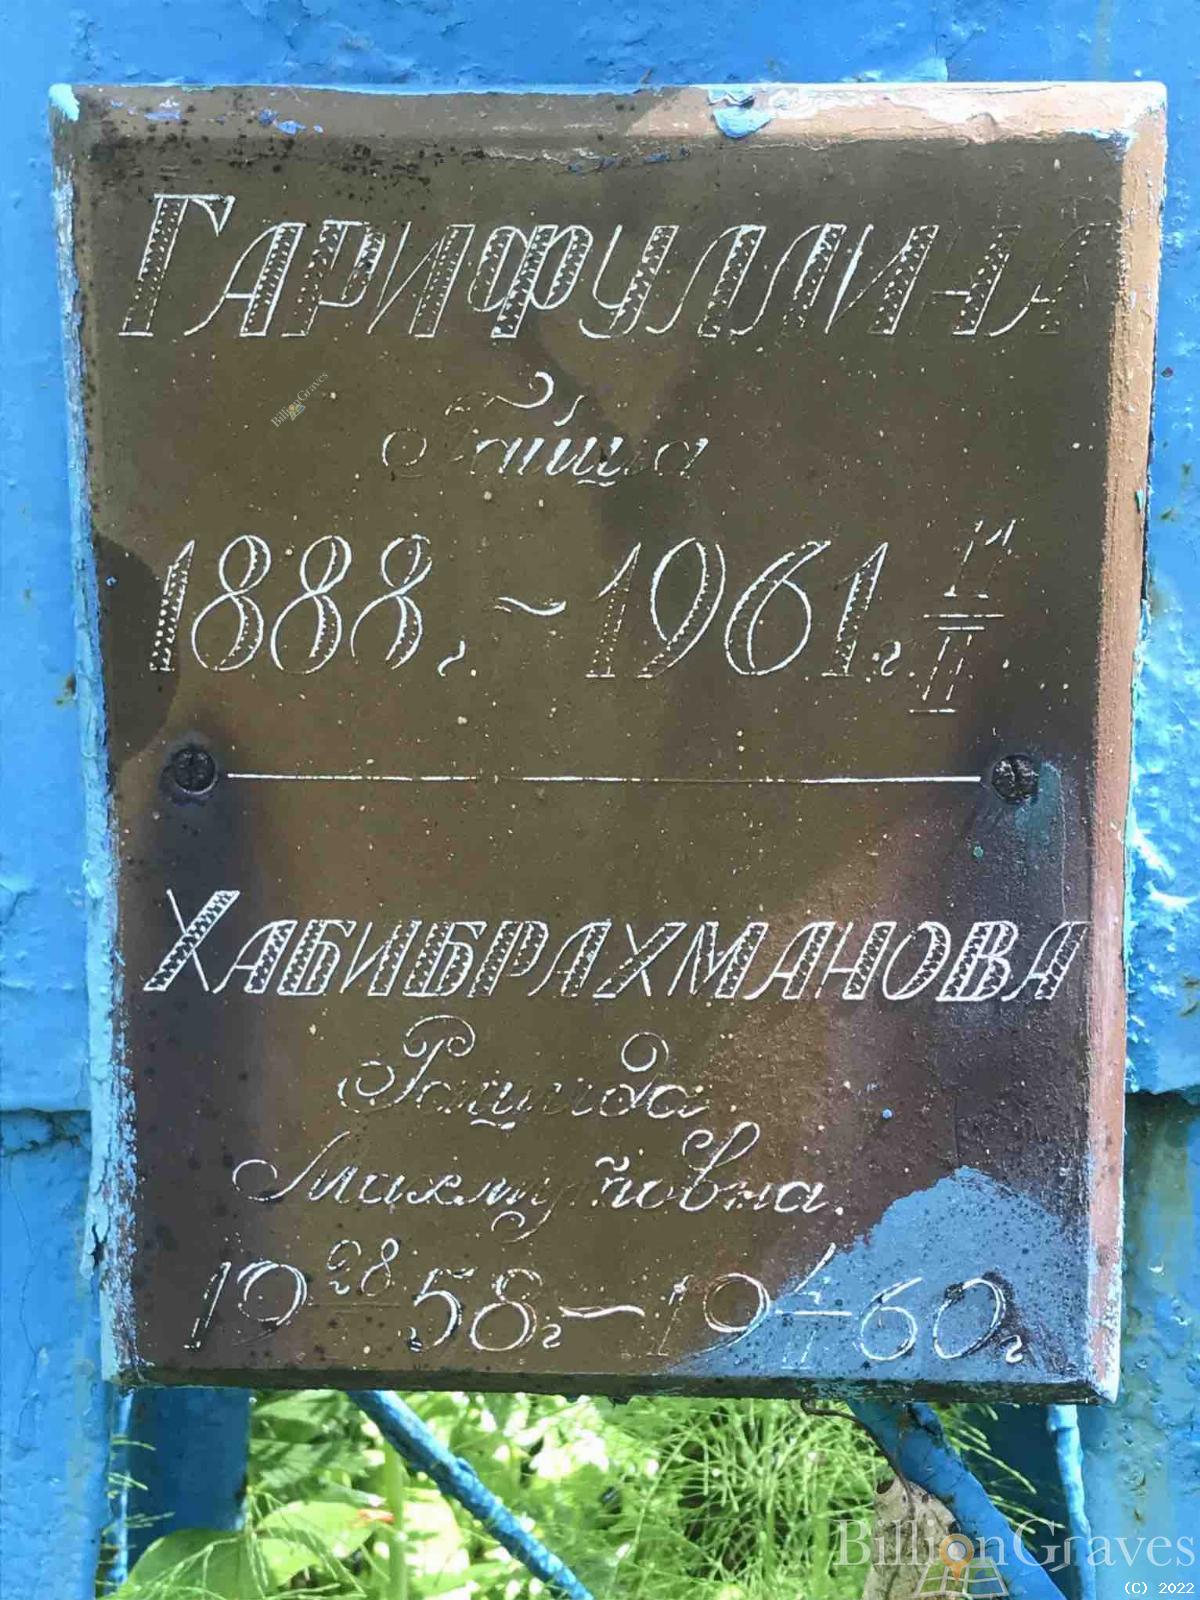 ГАРИФУЛЛИНА
Гайша
1888г. – 1961г. 11/II
ХАБИБРАХМАНОВА
Рашида
Махмутовна.
19 28 58г – 19 60г
BillionGraves
BillionGraves
(C) 2022